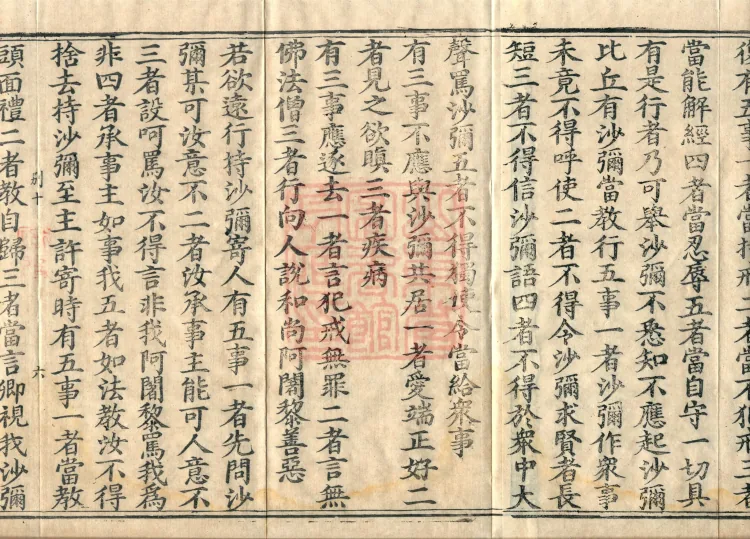 復有五事一者當持戒二者不犯戒三者
當能解經四者當忍辱五者當自守一切具
有是行者乃可舉沙彌不悉知不應起沙彌
比丘有沙彌當教行五事一者沙彌作衆事
未竟不得呼使二者不得令沙彌求賢者長
短三者不得信沙彌語四者不得於衆中大
聲罵沙彌五者不得獨使令當給衆事
有三事不應與沙彌共居一者愛端正好二
者見之欲瞋三者疾病
有三事應逐去一者言犯戒無罪二者言無
佛法僧三者行向人說和尚阿闍黎善惡
若欲遠行持沙彌寄人有五事一者先問沙
彌某可汝意不二者汝承事主能可人意不
三者設呵罵汝不得言非我阿闍黎罵我爲
非四者承事主如事我五者如法教汝不得
捨去持沙彌至主許寄時有五事一者當教
別十 六
頭面禮二者教自歸三者當言卿視我沙彌